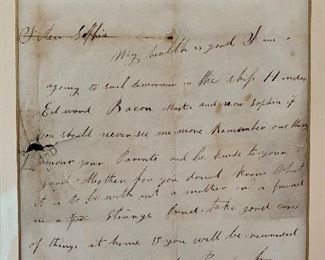 Sister Sophia
My health is good I am
agoing to sail tomorrow in the ship Hindoo
Edward Bacon Master and now Sophia if
you should never see me more Remember one thing
honour your Parents and be kinde to your
good Mother for you donot know What
it is to be with out a mother or a friend
in a Strange Land take good care
of things at home & you will be rewarded